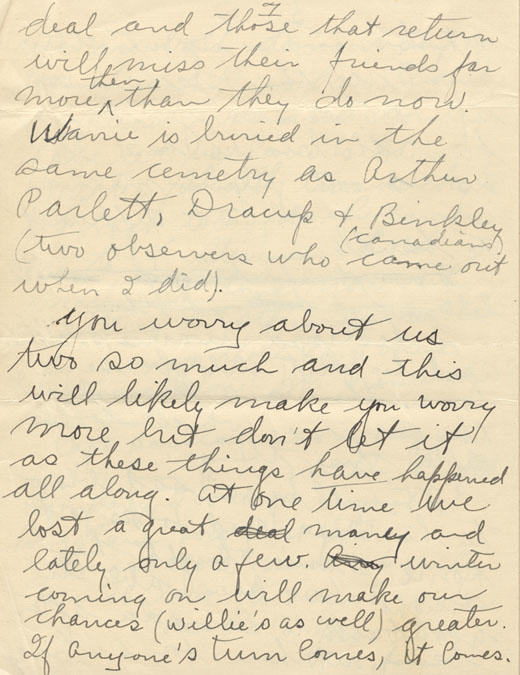 7
deal and those that return
will miss their friends far
more then than they do now.
Warrie is buried in the
same cemetry as Arthur
Parlett, Dracup & Binkley
(two observers who (Canadians) came out
when I did).
you worry about us
two so much and this
will likely make you worry
more but don't let it
as these things have happened
all along. At one time we
lost a great deal many and
lately only a few. Any winter
coming on will make our
chances (Willie's as well) greater.
If anyone's turn comes, it comes.